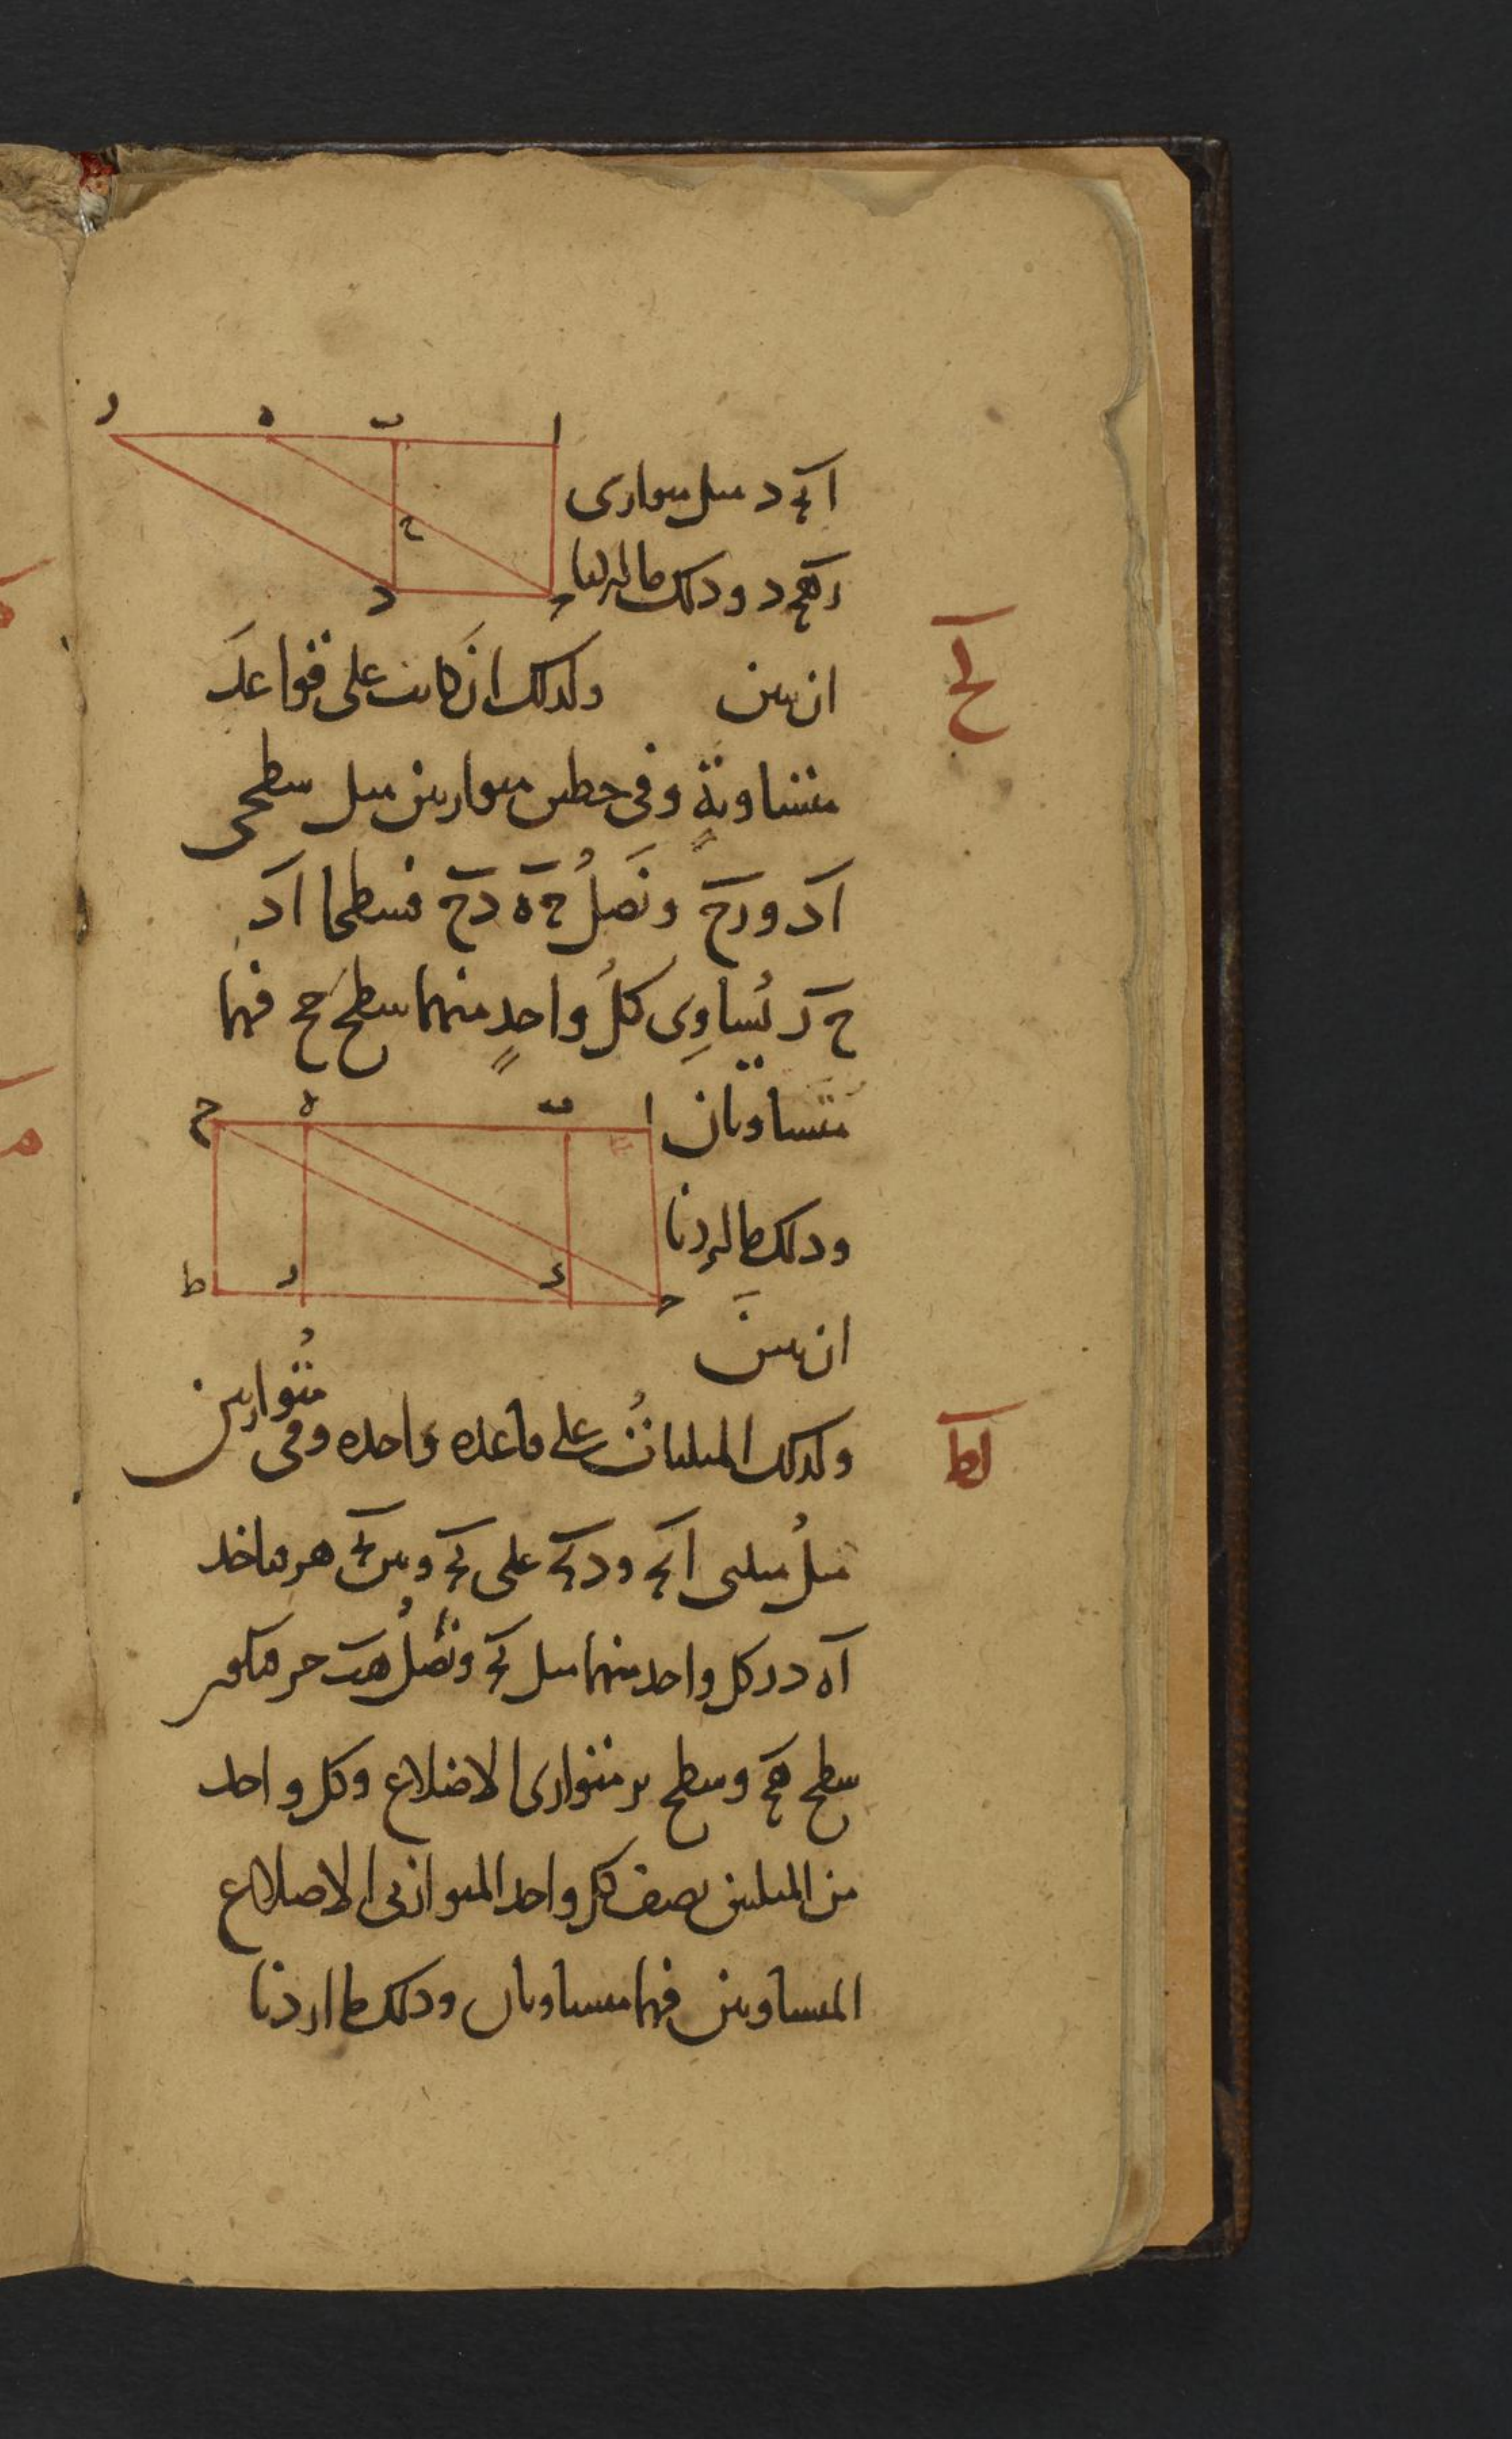 ا ب ج د مثل متوازى
ز ه ج د وذلك ما اردنا
ان نبين وكذلك ان كانت على قواعد
لح
متساوية وفى خطين متوازيين مثل سطحى
ا د و ز ح ونصل ج ه د ح فسطحا ا د
ح ز يساوى كل واحد منهما سطح ج ح فهما
متساويان
وذلك ما اردنا
ان نبين
وكذلك المثلثات على قاعدة واحدة وفى متوازيين
لط
مثل مثلثى ا ب ج و د ب ج على ب ج وبين
ا ه د ز كل واحد منهما مثل ب ج ونصل ه ب ج ز فيكون
سطح ه ج وسطح ب ز متوازى الاضلاع وكل واحد
من المثلثين نصف كل واحد المتوازى الاضلاع
المتساويين فهما متساويان وذلك ما اردنا